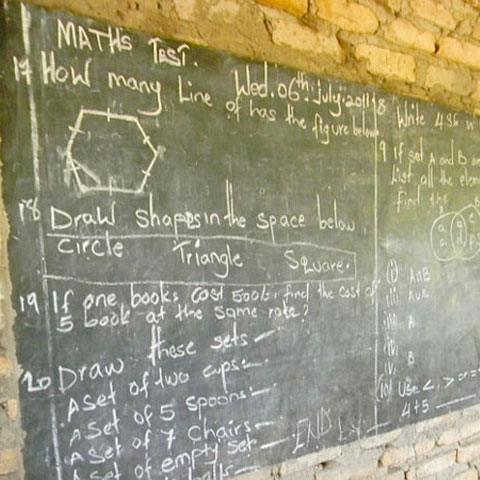 MATHS TEST.
Wed. 06th. july. 2011
17 How many Line of has the figure below
18 Draw shapes in the space below
circle Triangle Square.
19 If one books cost 500k, find the cost of
5 book at the same rate?
20 Draw these sets
A set of two cups
A set of 5 spoons
A set of 7 chairs
A set of empty set
END
8 Write 436 in
9 if set A and B
List all the
find the
(i) A∩B
A∪B
A
B
Use <, > or =
4+5